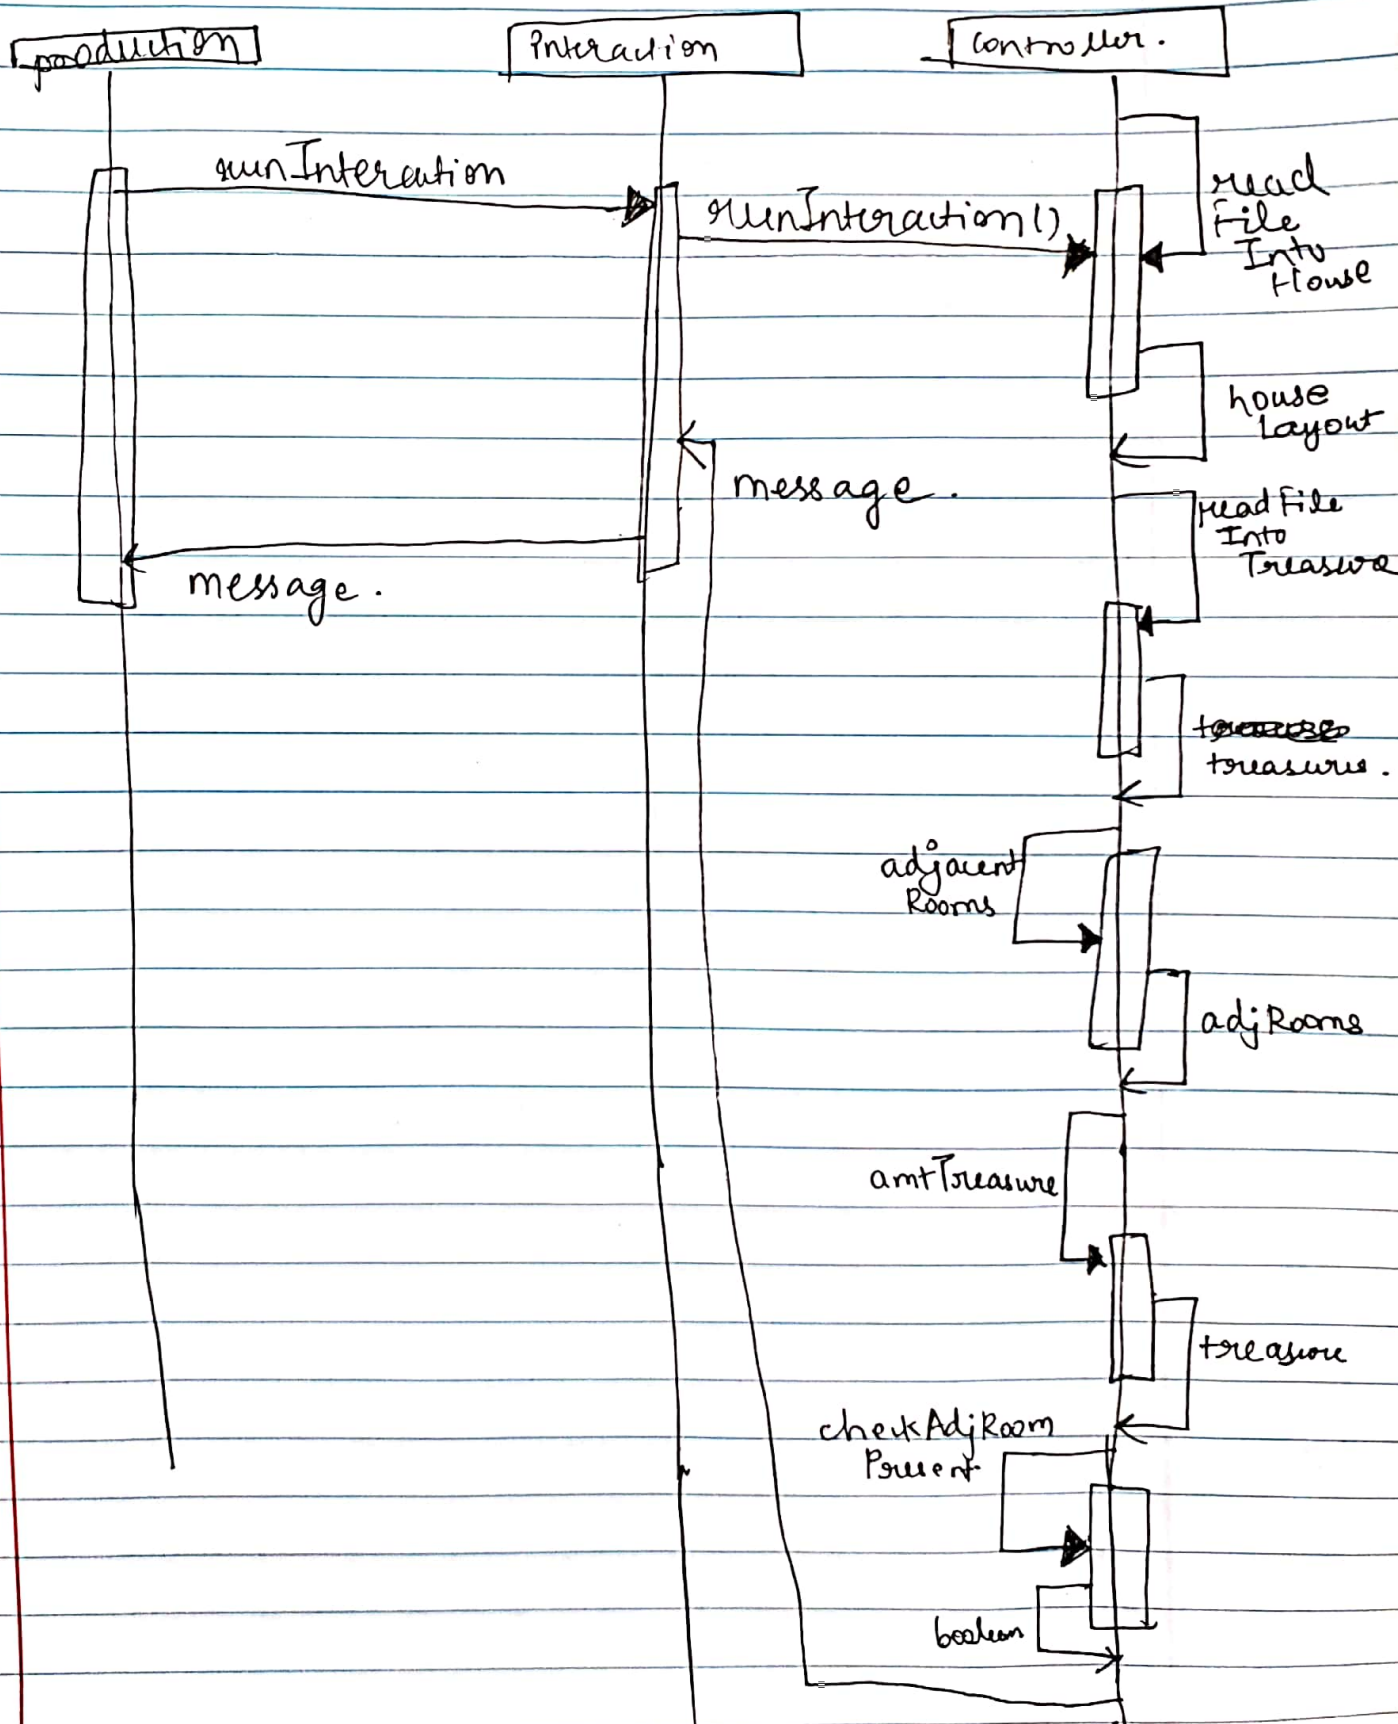 production
interaction
controller.
runInteration
runInteraction()
read
File
Into
House
house
Layout
message.
message.
readFile
Into
Treasure
treasures.
adjacent
Rooms
adjRooms
amtTreasure
treasure
checkAdjRoom
Present
boolean